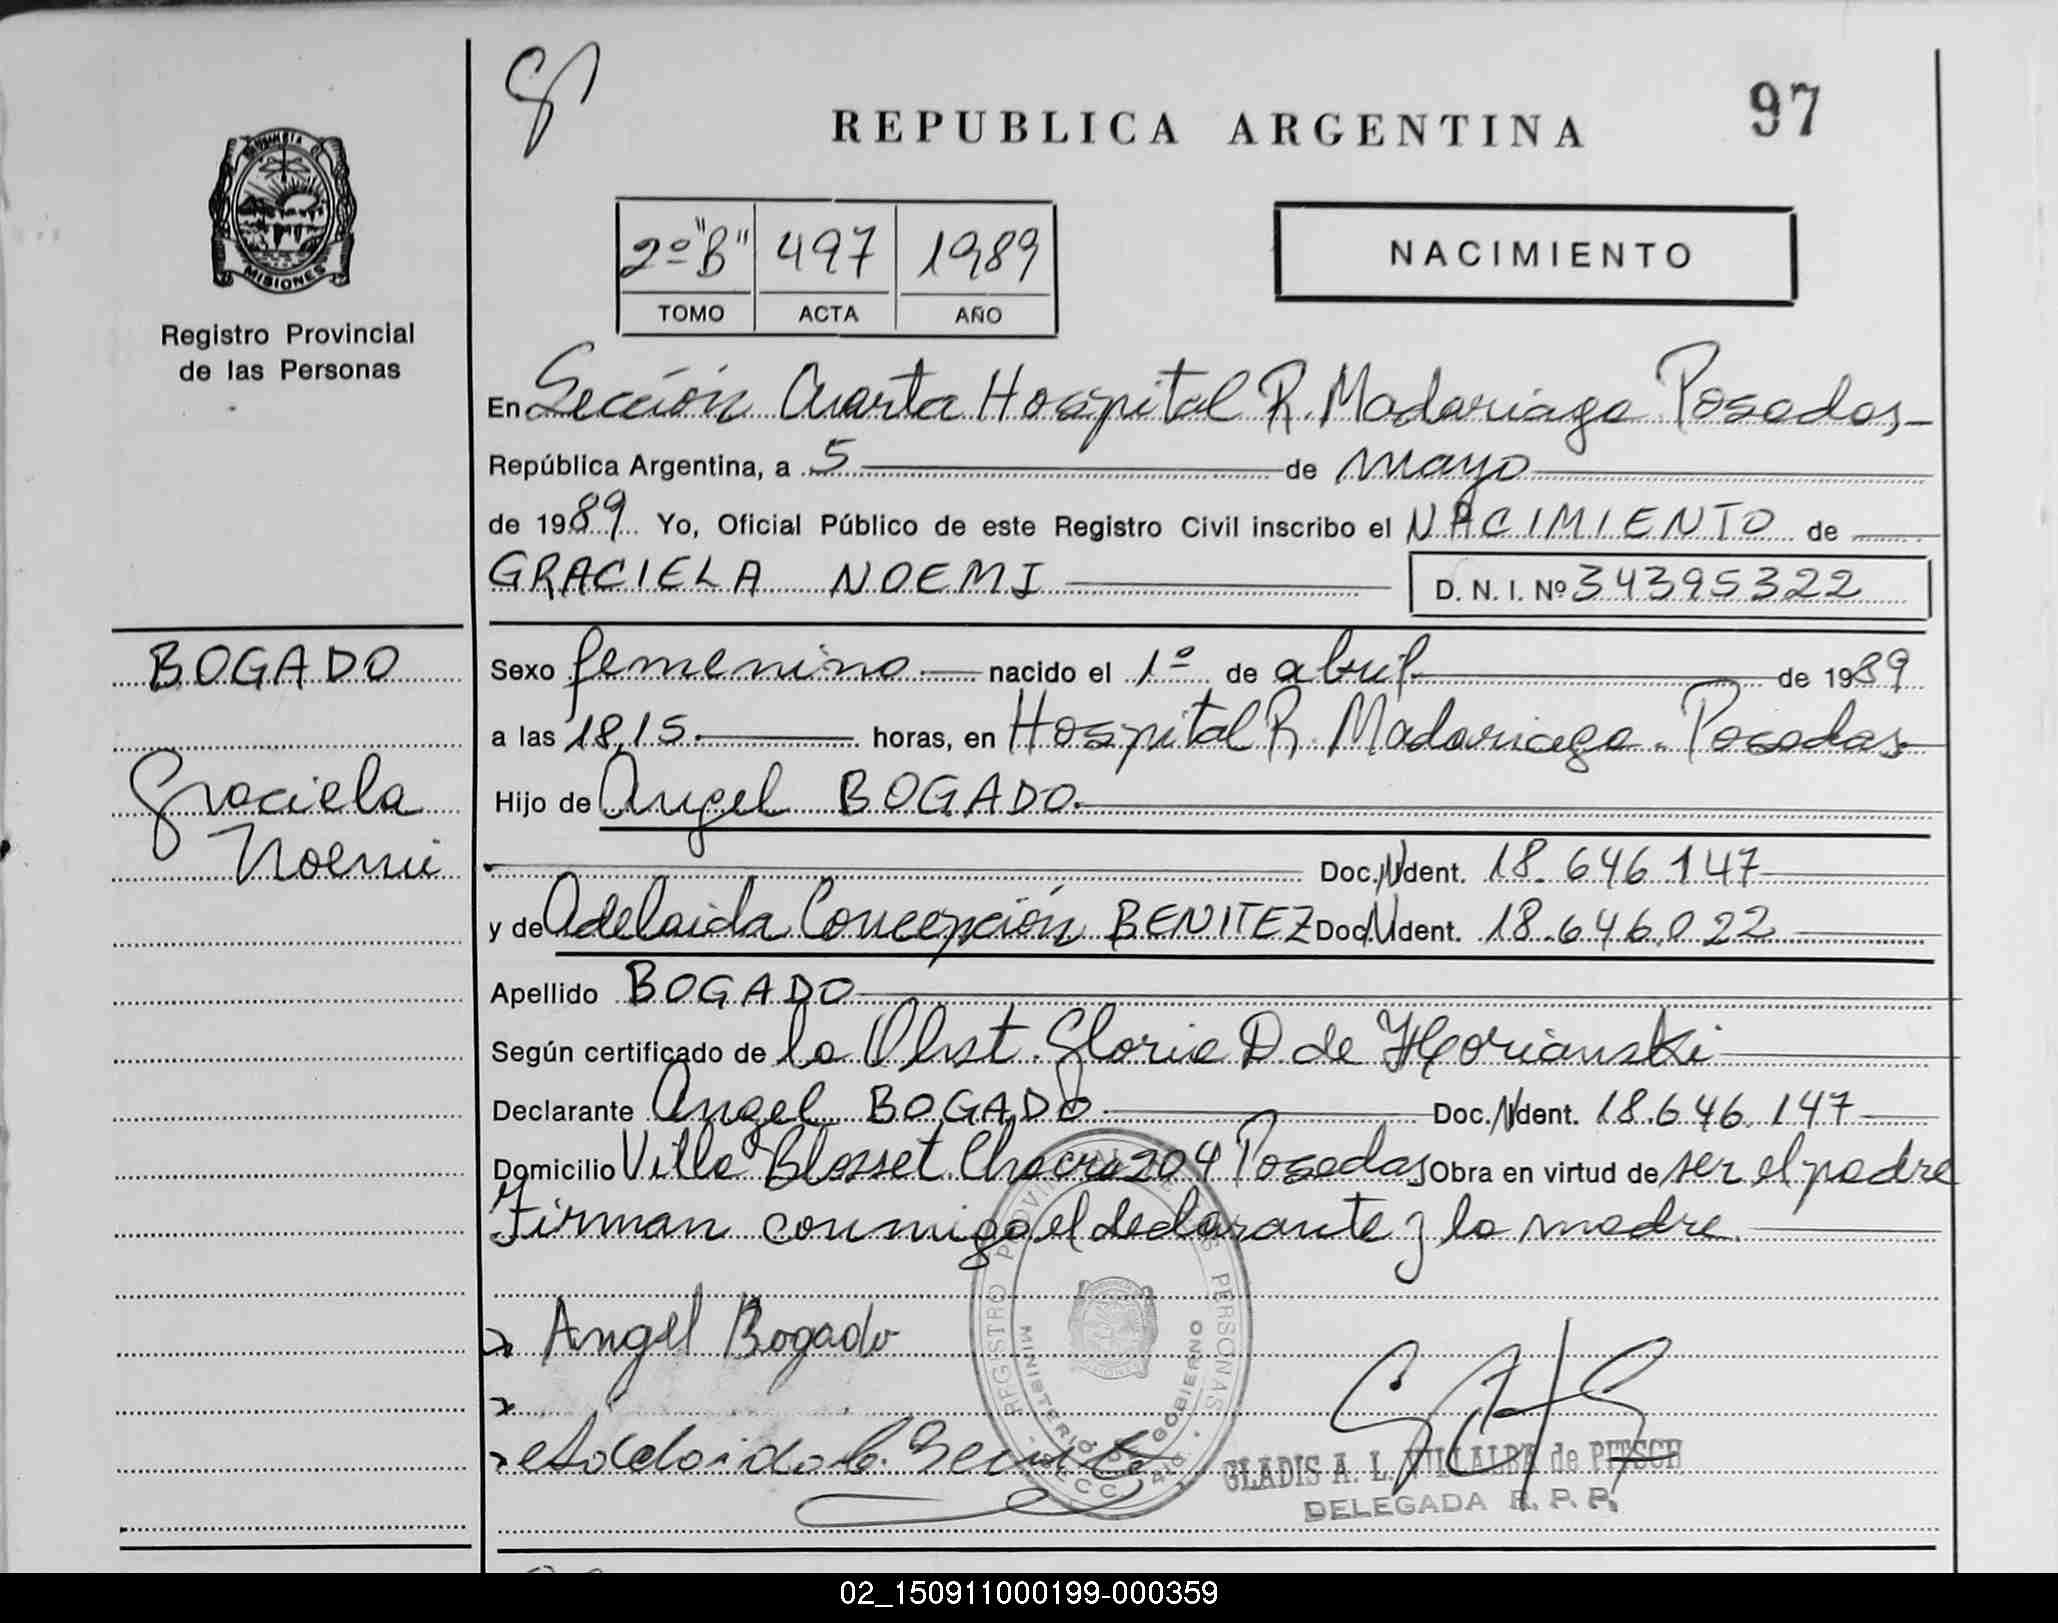 REPUBLICA ARGENTINA
97
PROVINCIA DE
MISIONES
Registro Provincial
de las Personas
2º "B" 497 1989
TOMO ACTA AÑO
NACIMIENTO
En Sección Cuarta Hospital R. Madariaga Posadas,
República Argentina, a 5 de mayo
de 1989 Yo, Oficial Público de este Registro Civil inscribo el NACIMIENTO de
GRACIELA NOEMI D. N. I. Nº 34395322
BOGADO
Graciela
Noemi
Sexo femenino nacido el 1º de abril de 1989
a las 18,15 horas, en Hospital R. Madariaga. Posadas
Hijo de Angel BOGADO
Doc. Ident. 18.646.147
y de Adelaida Concepción BENITEZ Doc. Ident. 18.646.022
Apellido BOGADO
Según certificado de la Obst. Gloria D. de
Declarante Angel BOGADO Doc. Ident. 18.646.147
Domicilio Villa Blosset Chacra 204 Posadas Obra en virtud de ser el padre
Firman conmigo el declarante y la madre.
Angel Bogado
Adelaida C. Benitez
REGISTRO PROVINCIAL DE LAS PERSONAS
MINISTERIO DE GOBIERNO
SECC. 4ta.
GLADIS A. L. VILLALBA de PITSCH
DELEGADA R. P. P.
02_150911000199-000359